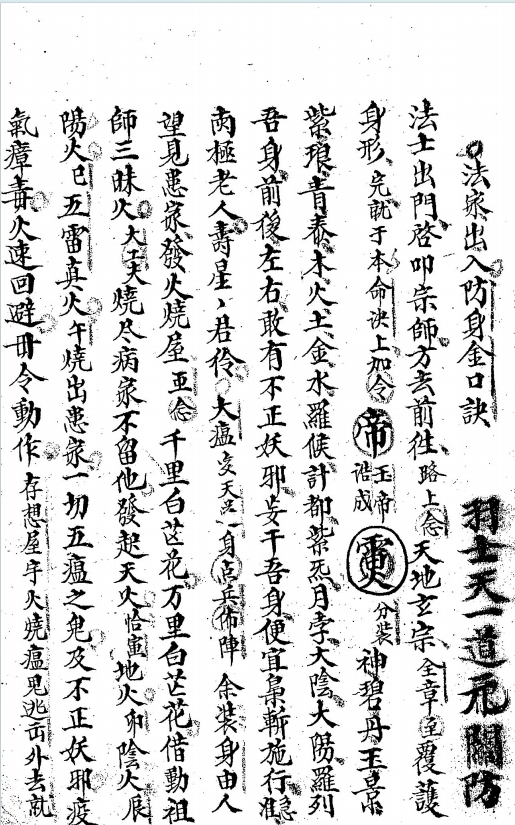 法家出入防身金口訣
羽士天一道元關防
法士出門啓叩宗師方去前往路上念天地玄宗全章至覆護
身形完就于本命訣上加令帝玉帝誥成靈分裝神碧丹玉景
紫琅青泰木火土金水羅候計都紫炁月孛大陰大陽羅列
吾身前後左右敢有不正妖邪妄干吾身便宜梟斬施行准
南極老人壽星丶君伶大瘟变天一身点兵佈陣余裝身由人
望見患家發火燒屋亚念千里白芒花万里白芒花借動祖
師三昧火大火燒尽病家不留他發起天火恰寅地火卯陰火辰
陽火巳五雷真火午燒出患家一切五瘟之鬼及不正妖邪疫
氣瘴毒火速回避毋令動作存想屋宇火燒瘟鬼逃击外去就